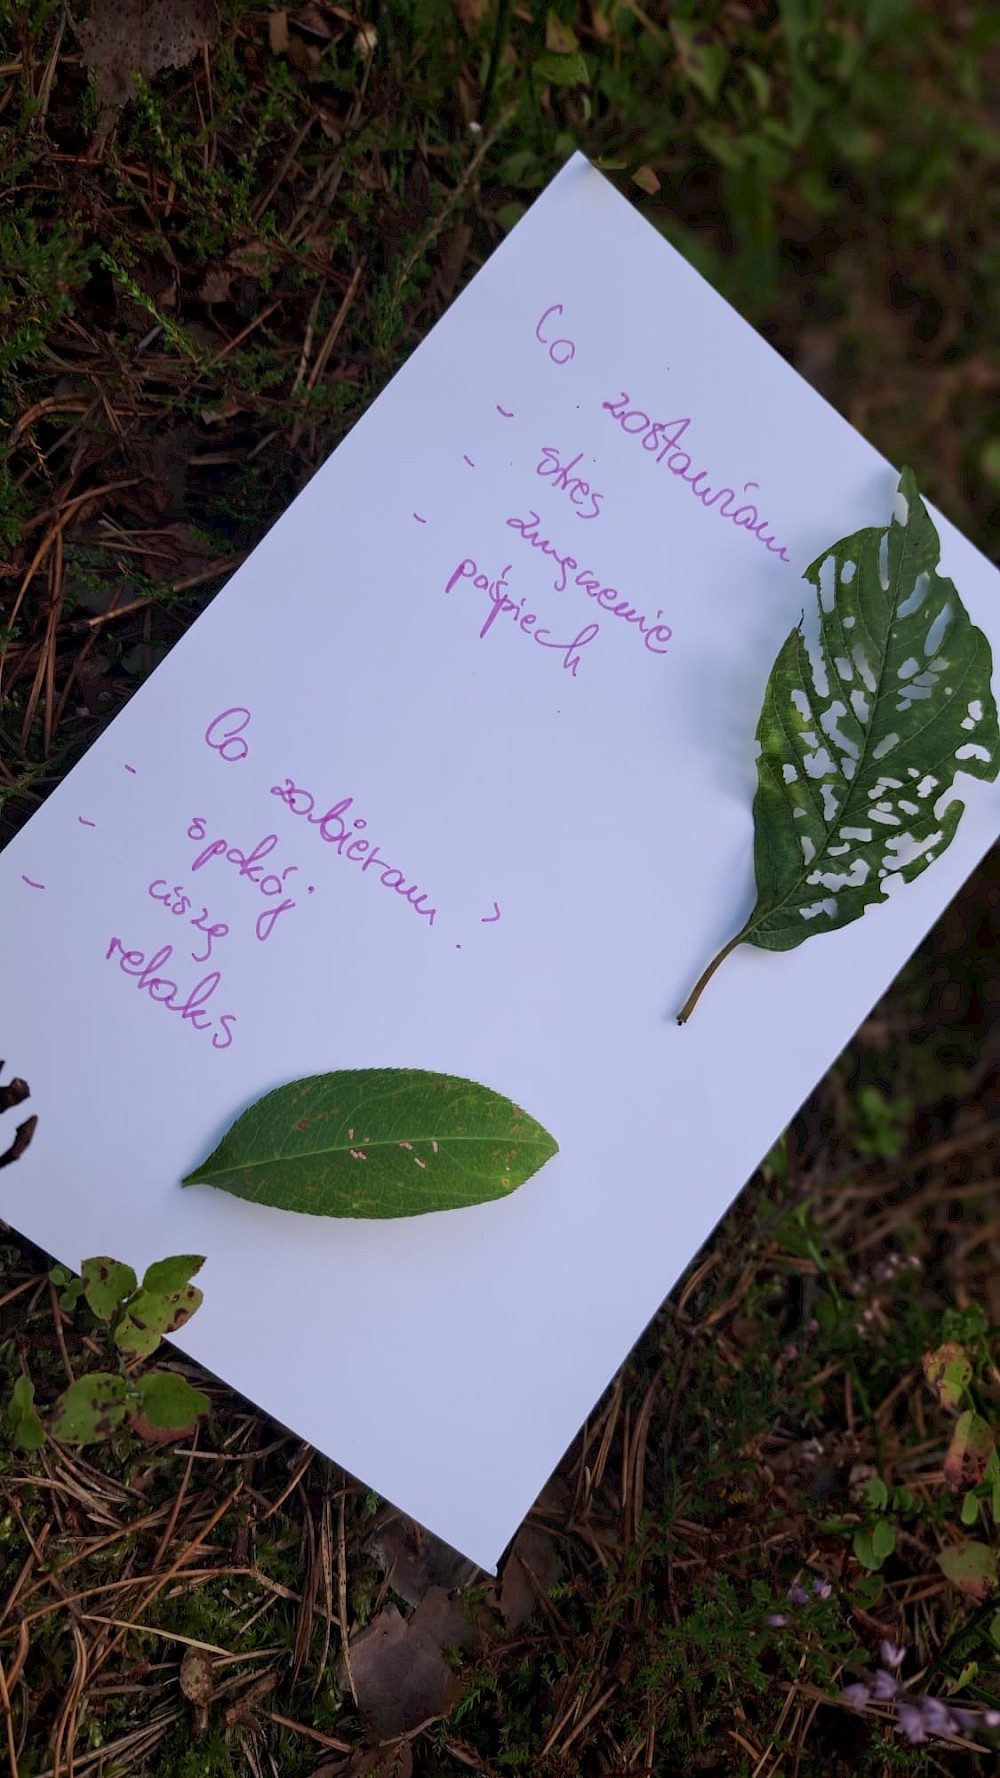 Co zostawiam
- stres
- zmęczenie
- pośpiech
Co zabieram?
- spokój
- ciszę
- relaks